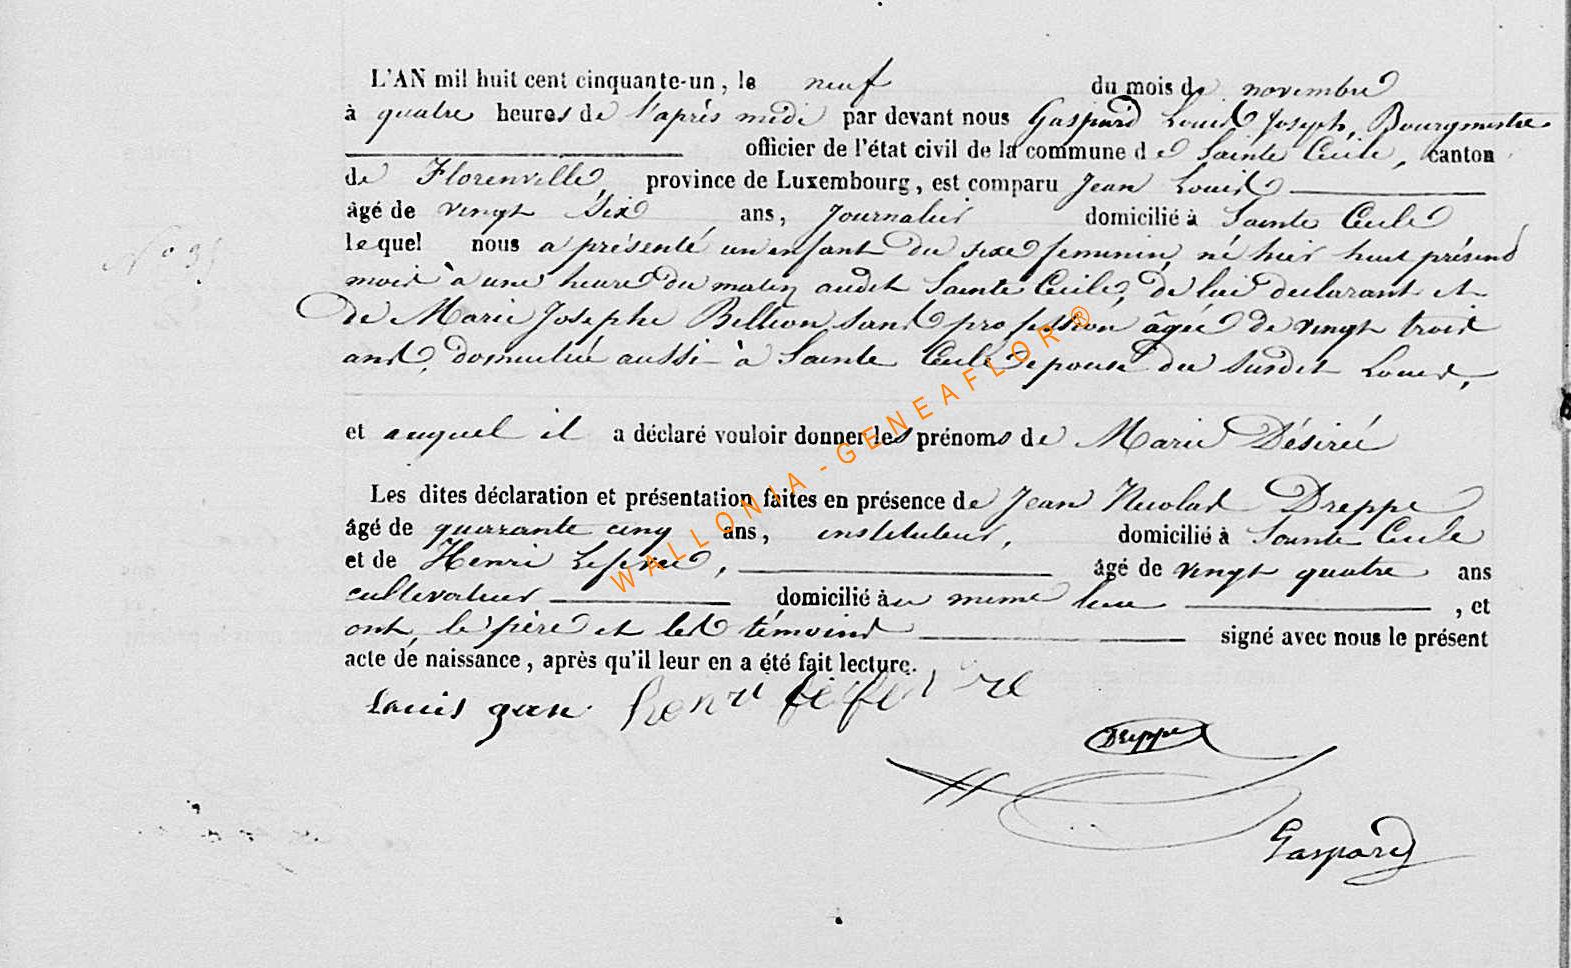 L'AN mil huit cent cinquante-un, le neuf du mois de novembre
à quatre heures de l'après midi par devant nous Gaspard Louis Joseph, Bourgmestre
officier de l'état civil de la commune de Sainte Cecile, canton
de Florenville, province de Luxembourg, est comparu Jean Louis
âgé de vingt six ans, Journalier domicilié à Sainte Cecile
lequel nous a présenté un enfant du sexe feminin né hier huit présend
N° 35
mois à une heure du matin audit Sainte Cecile, de lui déclarant et
de Marie Josephe Billion sans profession âgée de vingt trois
ans, domiciliée aussi à Sainte Cecile epouse du susdit Louis,
et auquel il a déclaré vouloir donner les prénoms de Marie Désirée
Les dites déclaration et présentation faites en présence de Jean Nicolas Dreppe
âgé de quarante cinq ans, instituteur, domicilié à Sainte Cecile
et de Henri Lefevre, âgé de vingt quatre ans
cultivateur domicilié au meme lieu , et
ont, le père et les témoins signé avec nous le présent
acte de naissance, après qu'il leur en a été fait lecture.
Louis jean Henri lefevre
Dreppe
Gaspard
WALLONIA - GENEAFLOR ®